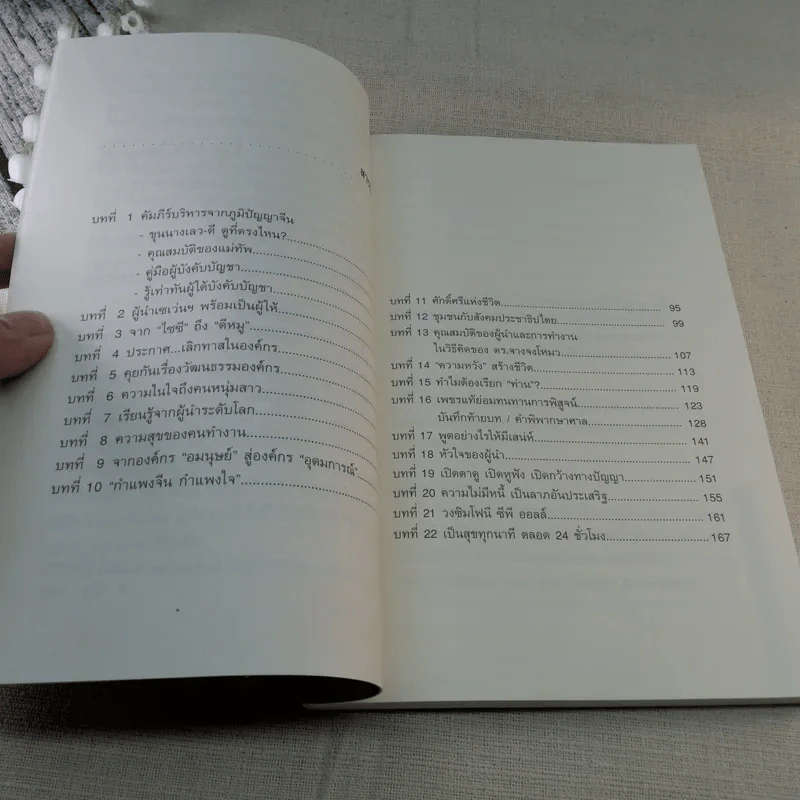 บทที่ 1 คัมภีร์บริหารจากภูมิปัญญาจีน
- ขุนนางเลว-ดี ดูที่ตรงไหน?
- คุณสมบัติของแม่ทัพ
- คู่มือผู้บังคับบัญชา
- รู้เท่าทันผู้ใต้บังคับบัญชา
บทที่ 2 ผู้นำเซเว่นฯ พร้อมเป็นผู้ให้
บทที่ 3 จาก "ไซซี" ถึง "ตีหมู"
บทที่ 4 ประกาศ...เลิกทาสในองค์กร
บทที่ 5 คุยกันเรื่องวัฒนธรรมองค์กร
บทที่ 6 ความในใจถึงคนหนุ่มสาว
บทที่ 7 เรียนรู้จากผู้นำระดับโลก
บทที่ 8 ความสุขของคนทำงาน
บทที่ 9 จากองค์กร "อมนุษย์" สู่องค์กร "อุดมการณ์"
บทที่ 10 "กำแพงจีน กำแพงใจ"
บทที่ 11 ศักดิ์ศรีแห่งชีวิต 95
บทที่ 12 ชุมชนกับสังคมประชาธิปไตย 99
บทที่ 13 คุณสมบัติของผู้นำและการทำงาน
ในวิธีคิดของ ดร.จางจงโหมว 107
บทที่ 14 "ความหวัง" สร้างชีวิต 113
บทที่ 15 ทำไมต้องเรียก "ท่าน"? 119
บทที่ 16 เพชรแท้ย่อมทนทานการพิสูจน์ 123
บันทึกท้ายบท / คำพิพากษาศาล 128
บทที่ 17 พูดอย่างไรให้มีเสน่ห์ 141
บทที่ 18 หัวใจของผู้นำ 147
บทที่ 19 เปิดตาดู เปิดหูฟัง เปิดกว้างทางปัญญา 151
บทที่ 20 ความไม่มีหนี้ เป็นลาภอันประเสริฐ 155
บทที่ 21 วงซิมโฟนี ซีพี ออลล์ 161
บทที่ 22 เป็นสุขทุกนาที ตลอด 24 ชั่วโมง 167